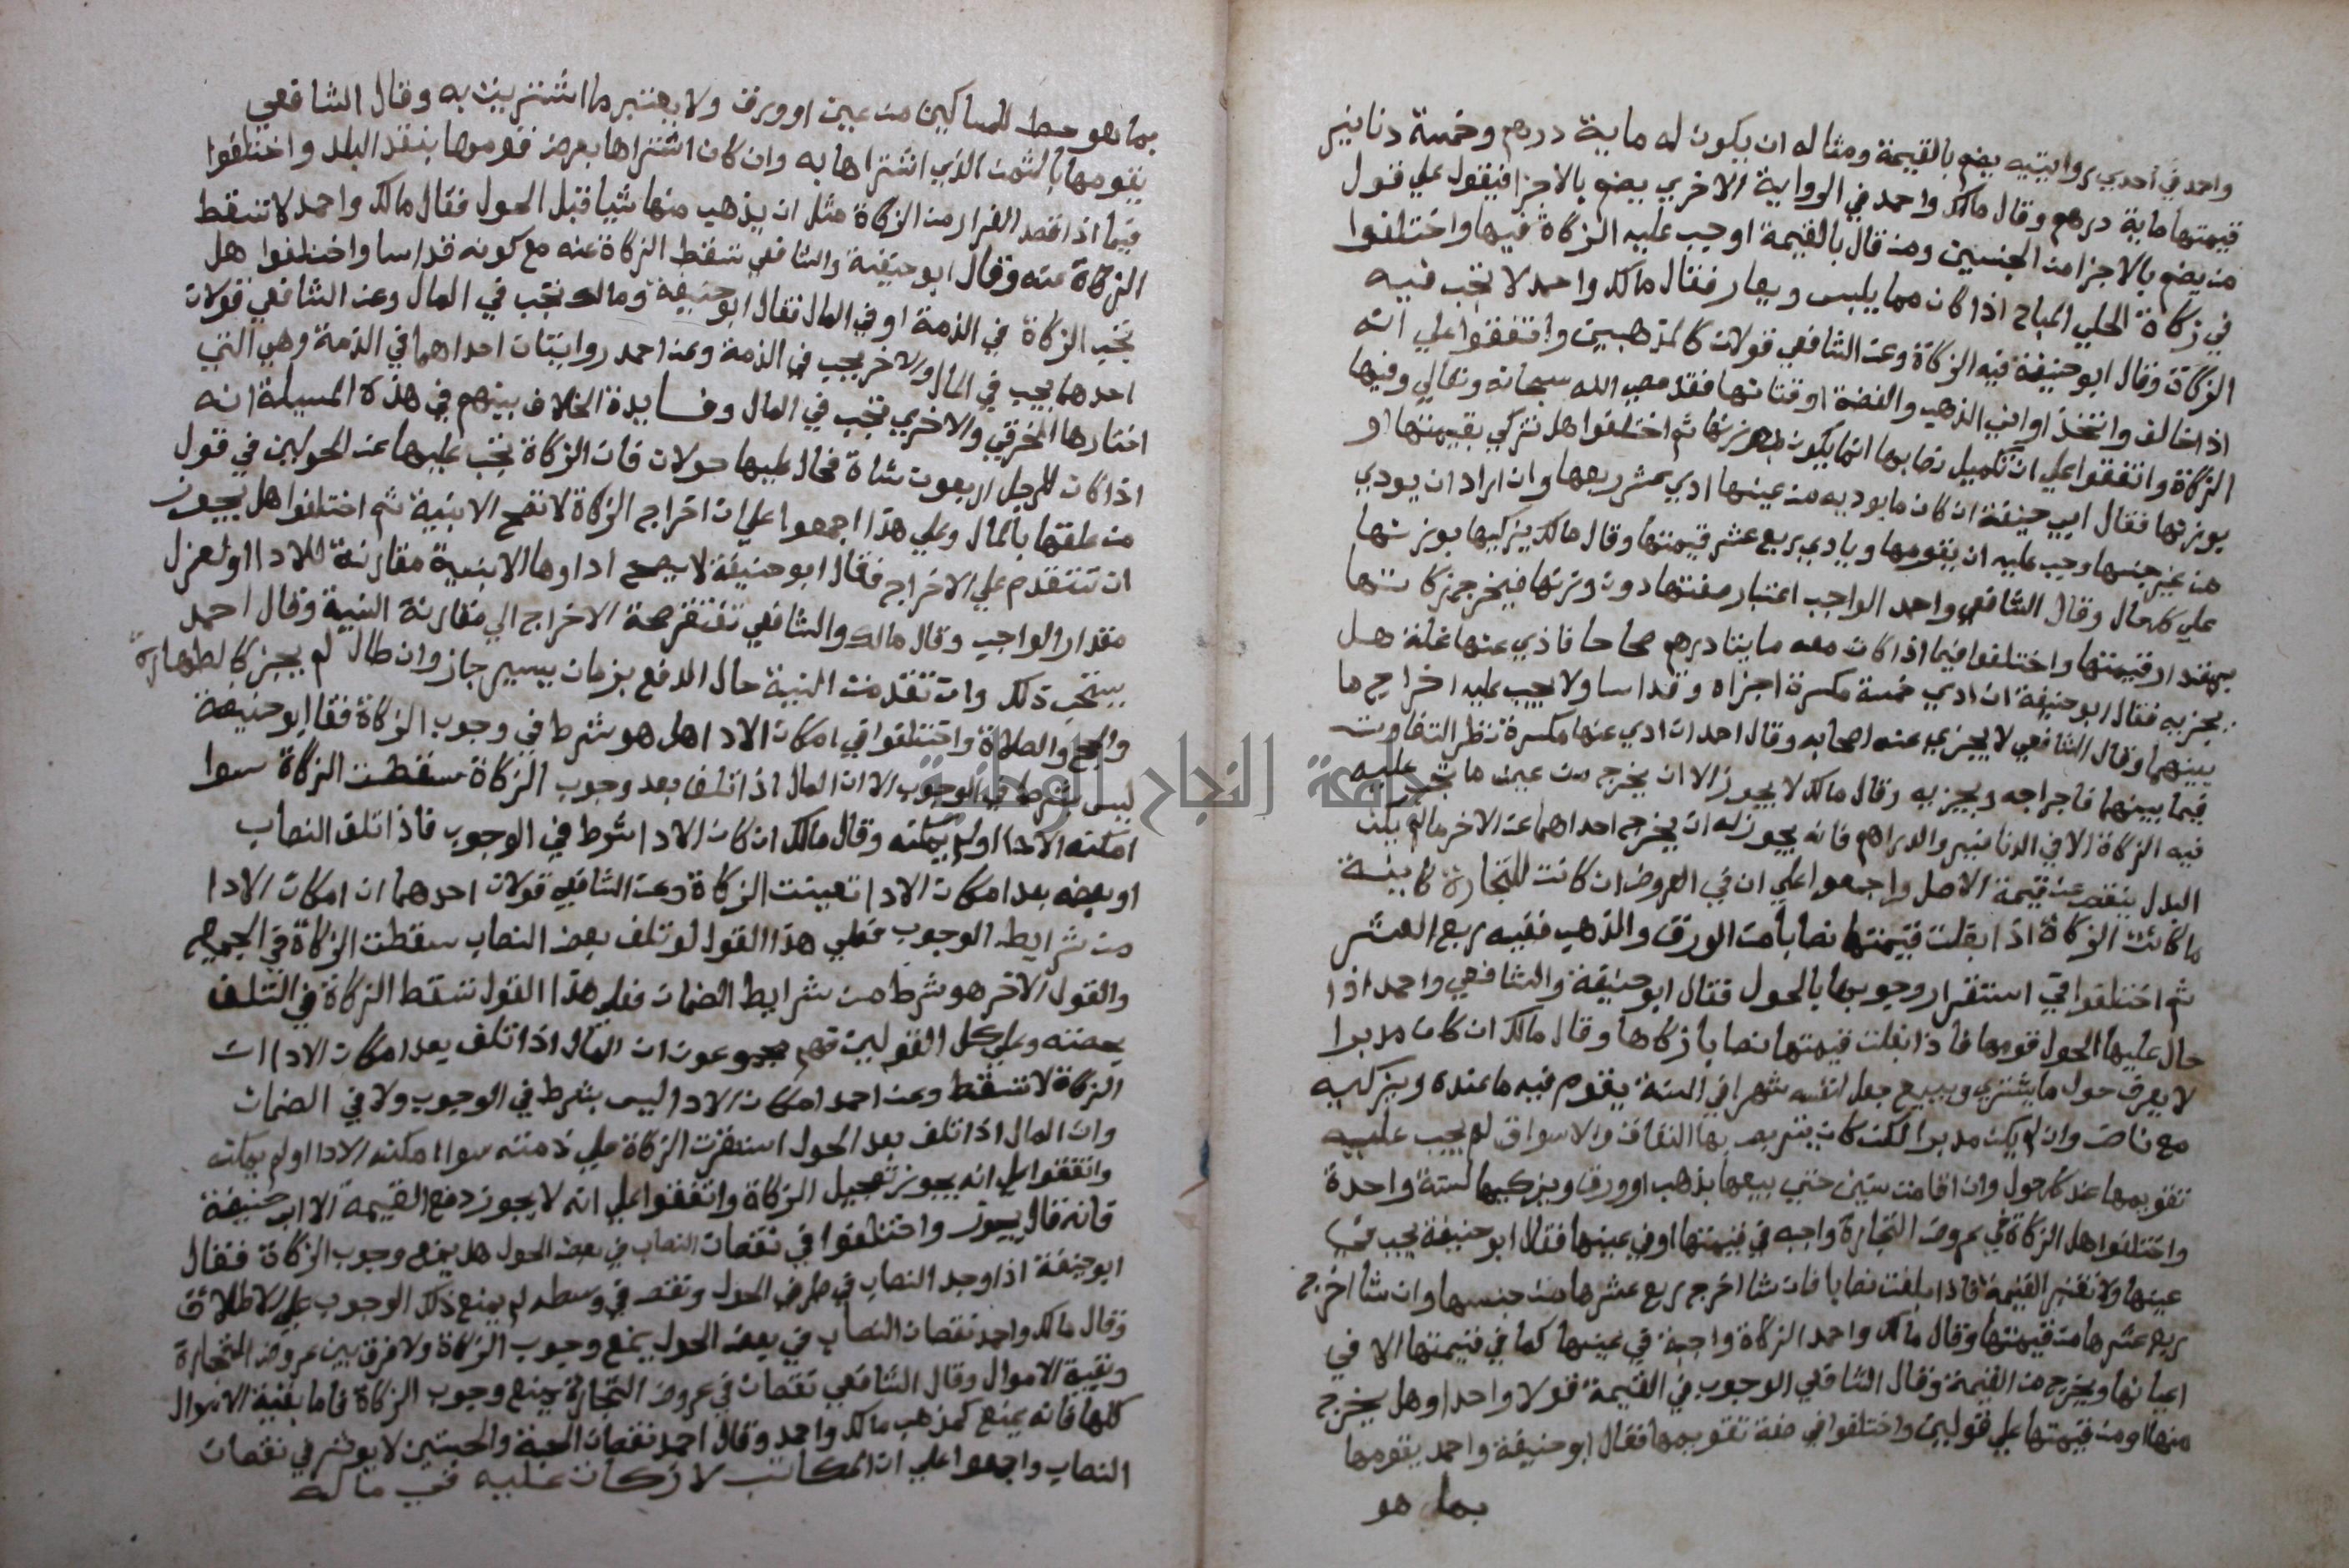 واحمد في احدي روايتيه يضم بالقيمة ومثاله ان يكون له ماية درهم وخمسة دنانير
قيمتها ماية درهم وقال مالك واحمد في الرواية الاخري يضم بالاجزا فيقول علي قول
من يضم بالاجزا من الجنسين ومن قال بالقيمة اوجب عليه الزكاة فيها واختلفوا
في زكاة الحلي المباح اذا كان مما يلبس ويعار فقال مالك واحمد لا تجب فيه
الزكاة وقال ابو حنيفة فيه الزكاة وعن الشافعي قولان كالمذهبين واتفقوا علي انه
اذا خالف واتخذ اواني الذهب والفضة او قتناتها فقد عصي الله سبحانه وتعالي وفيها
الزكاة واتفقوا علي ان تكميل نصابها انما يكون بوزنها ثم اختلفوا هل تزكي بقيمتها او
بوزنها فقال ابي حنيفة ان كان ما يوديه من عينها ادي عشر ربعها وان اراد ان يودي
من غير جنسها وجب عليه ان يقومها ويادي ربع عشر قيمتها وقال مالك يزكيها بوزنها
علي كل حال وقال الشافعي واحمد الواجب اعتبار صفتها دون وزنها فيخرج زكاتها
بمقدار قيمتها واختلفوا فيما اذا كان معه مايتا درهم صحاحا فاذي عنها غلة هل
يجزيه فقال ابو حنيفة ان ادي خمسة مكسرة اجزاه وقد اسا ولا يجب عليه اخراج ما
بينهما وقال الشافعي لا يجزي عنه اصحابه وقال احمد ان ادي عنها مكسرة نظر التفاوت
فيما بينهما فاجراجه ويجزيه وقال مالك لا يجوز الا ان يخرج من عين ما تجب عليه
فيه الزكاة الا في الدنانير والدراهم فانه يجوز له ان يخرج احداهما عن الاخر مالم يكن
البدل ينقص عن قيمة الاصل واجمعوا علي ان في العروض ان كانت للتجارة كاينة
ما كانت الزكاة اذا بلغت قيمتها نصابا من الورق والذهب ففيه ربع العشر
ثم اختلفوا في استقرار وجوبها بالحول فقال ابو حنيفة والشافعي واحمد اذا
حال عليها الحول قومها فاذا بلغت قيمتها نصابا زكاها وقال مالك ان كان مدبرا
لا يعرف حول ما يشتري ويبيع جعل لنفسه شهرا في السنة يقوم فيه ما عنده ويزكيه
مع ناض وان لم يكن مدبرا لكن كان يتربص بها النفاق والاسواق لم يجب عليه
تقويمها عند كل حول وان اقامت سنين حتي يبيعها بذهب او ورق ويزكيها لسنة واحدة
واختلفوا هل الزكاة في عروض التجارة واجبه في قيمتها او في عينها فقال ابو حنيفة يجب في
عينها ولا تعتبر القيمة فاذا بلغت نصابا فان شا اخرج ربع عشرها من جنسها وان شا اخرج
ربع عشرها من قيمتها وقال مالك واحمد الزكاة واجبة في عينها كما في قيمتها لا في
اعيانها ويخرج من القيمة وقال الشافعي الوجوب في القيمة قولا واحدا وهل يخرج
منها او من قيمتها علي قولين واختلفوا في صفة تقويمها فقال ابو حنيفة واحمد يقومها
بما هو
بما هو حط للمساكين من عين او ورق ولا يعتبر ما اشتريت به وقال الشافعي
يقومها بالثمن الذي اشتراها به وان كان اشتراها بعرض قومها بنقد البلد واختلفوا
فيما اذا قصد الفرار من الزكاة مثل ان يذهب منها شيا قبل الحول فقال مالك واحمد لا تسقط
الزكاة عنه وقال ابو حنيفة والشافعي تسقط الزكاة عنه مع كونه قد اسا واختلفوا هل
تجب الزكاة في الذمة او في المال فقال ابو حنيفة ومالك تجب في المال وعن الشافعي قولان
احدهما يجب في المال والاخر يجب في الذمة وعن احمد روايتان احداهما في الذمة وهي التي
اختارها الخرقي والاخري تجب في المال وفايدة الخلاف بينهم في هذه المسيلة انه
اذا كان للرجل اربعون شاة فحال عليها حولان فان الزكاة تجب عليها عن الحولين في قول
من علقها بالمال وعلي هذا اجمعوا علي ان اخراج الزكاة لا تصح الا بنية ثم اختلفوا هل يجوز
ان تتقدم علي الاخراج فقال ابو حنيفة لا يصح اداوها الا بنية مقارنة للادا او لعزل
مقدار الواجب وقال مالك والشافعي تفتقر صحة الاخراج الي مقارنة النية وقال احمد
يستحب ذلك وان تقدمت النية حال الدفع بزمان يسير جاز وان طال لم يجز كالطهارة
والحج والصلاة واختلفوا في امكان الادا هل هو شرط في وجوب الزكاة فقال ابو حنيفة
ليس بشرط في الوجوب الا ان المال اذا تلف بعد وجوب الزكاة سقطت الزكاة سوا
امكنه الادا او لم يمكنه وقال مالك ان كان الادا شرط في الوجوب فاذا تلف النصاب
او بعضه بعد امكان الادا تعينت الزكاة وعن الشافعي قولان احدهما ان امكان الادا
من شرايط الوجوب فعلي هذا القول لو تلف بعض النصاب سقطت الزكاة في الجميع
والقول الاخر هو شرط من شرايط الضمان فعلي هذا القول تسقط الزكاة في التلف
بحصته وعلي كل القولين فهم مجموعون ان المال اذا تلف بعد امكان الادا ان
الزكاة لا تسقط وعن احمد امكان الادا ليس بشرط في الوجوب ولا في الضمان
وان المال اذا تلف بعد الحول استقرت الزكاة علي ذمته سوا امكنه الادا او لم يمكنه
واتفقوا علي انه يجوز تعجيل الزكاة واتفقوا علي انه لا يجوز دفع القيمة الا ابو حنيفة
فانه قال يجوز واختلفوا في نقصان النصاب في بعض الحول هل يمنع وجوب الزكاة فقال
ابو حنيفة اذا وجد النصاب في طرفي الحول ونقص في وسطه لم يمنع ذلك الوجوب علي الاطلاق
وقال مالك واحمد نقصان النصاب في بعض الحول يمنع وجوب الزكاة ولا فرق بين عروض التجارة
وبقية الاموال وقال الشافعي نقصان في عروض التجارة يمنع وجوب الزكاة فاما بقية الاموال
كلها فانه يمنع كمذهب مالك واحمد وقال احمد نقصان الحبة والحبتين لا يوثر في نقصان
النصاب واجمعوا علي ان المكاتب لا زكات عليه في ماله
جامعة النجاح الوطنية